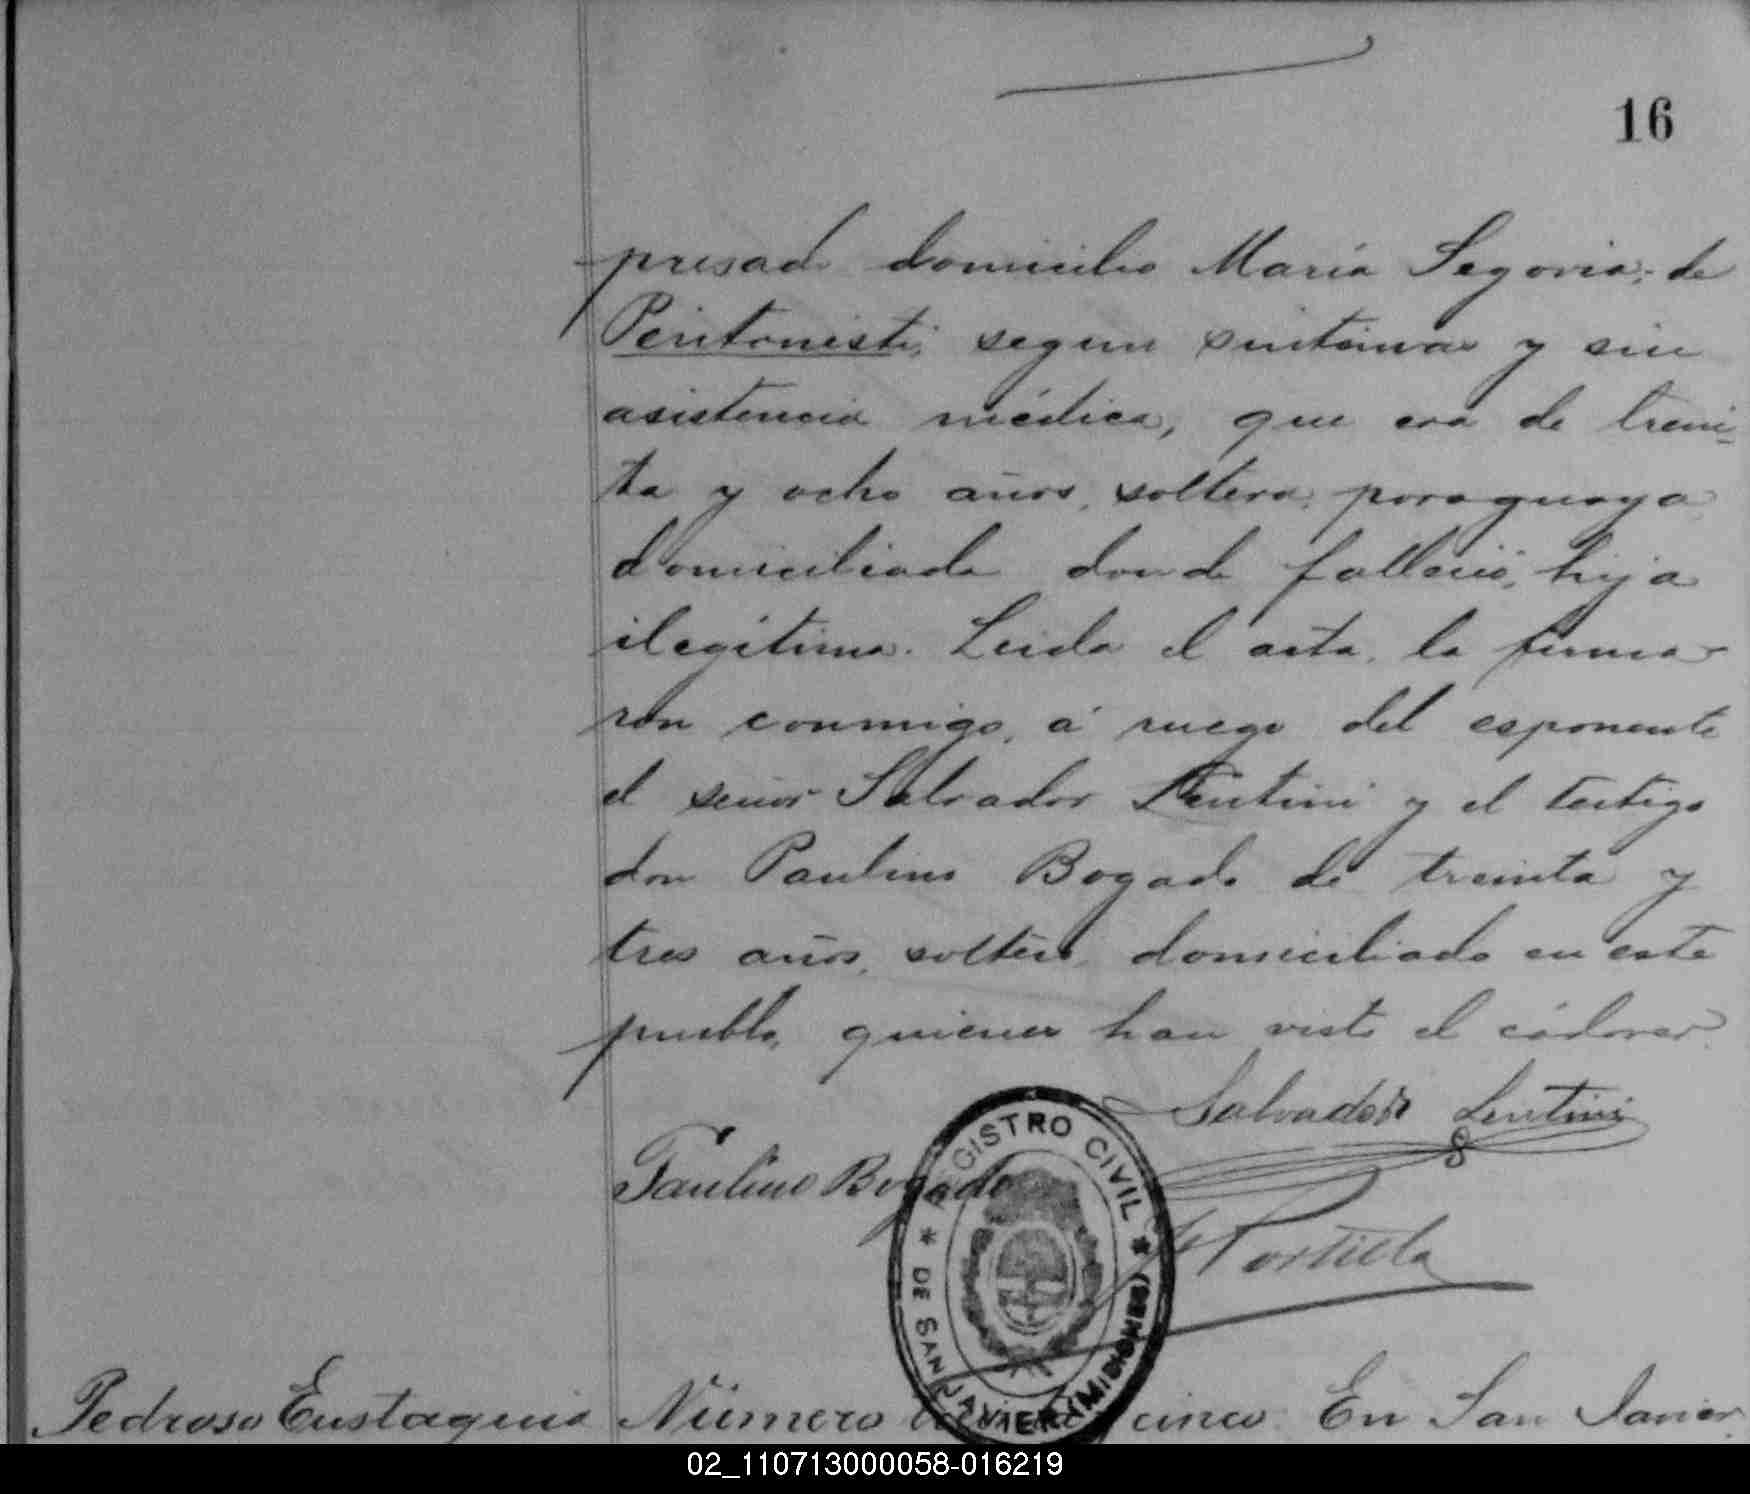 16
presado domicilio María Segovia, de
Peritonistis, segun sintomas y sin
asistencia médica, que era de trein-
ta y ocho años, soltera, paraguaya
domiciliada donde falleció, hija
ilegítima. Leida el acta, la firma-
ron conmigo, á ruego del esponente
el señor Salvador Lentini y el testigo
don Paulino Bogado de treinta y
tres años, soltero, domiciliado en este
pueblo, quienes han visto el cádaver.
Salvador Lentini
Paulino Bogado
REGISTRO CIVIL
* DE SAN JAVIER (MISIONES) *
Portiela
Pedroso Eustaquio Número cinco. En San Javier
02_110713000058-016219